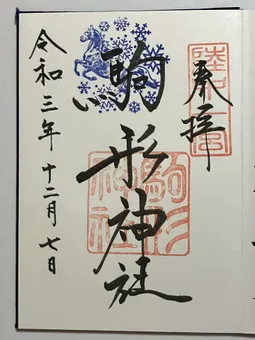 奉拝
陸中一宮
駒形神社
駒形神社
令和三年十二月七日